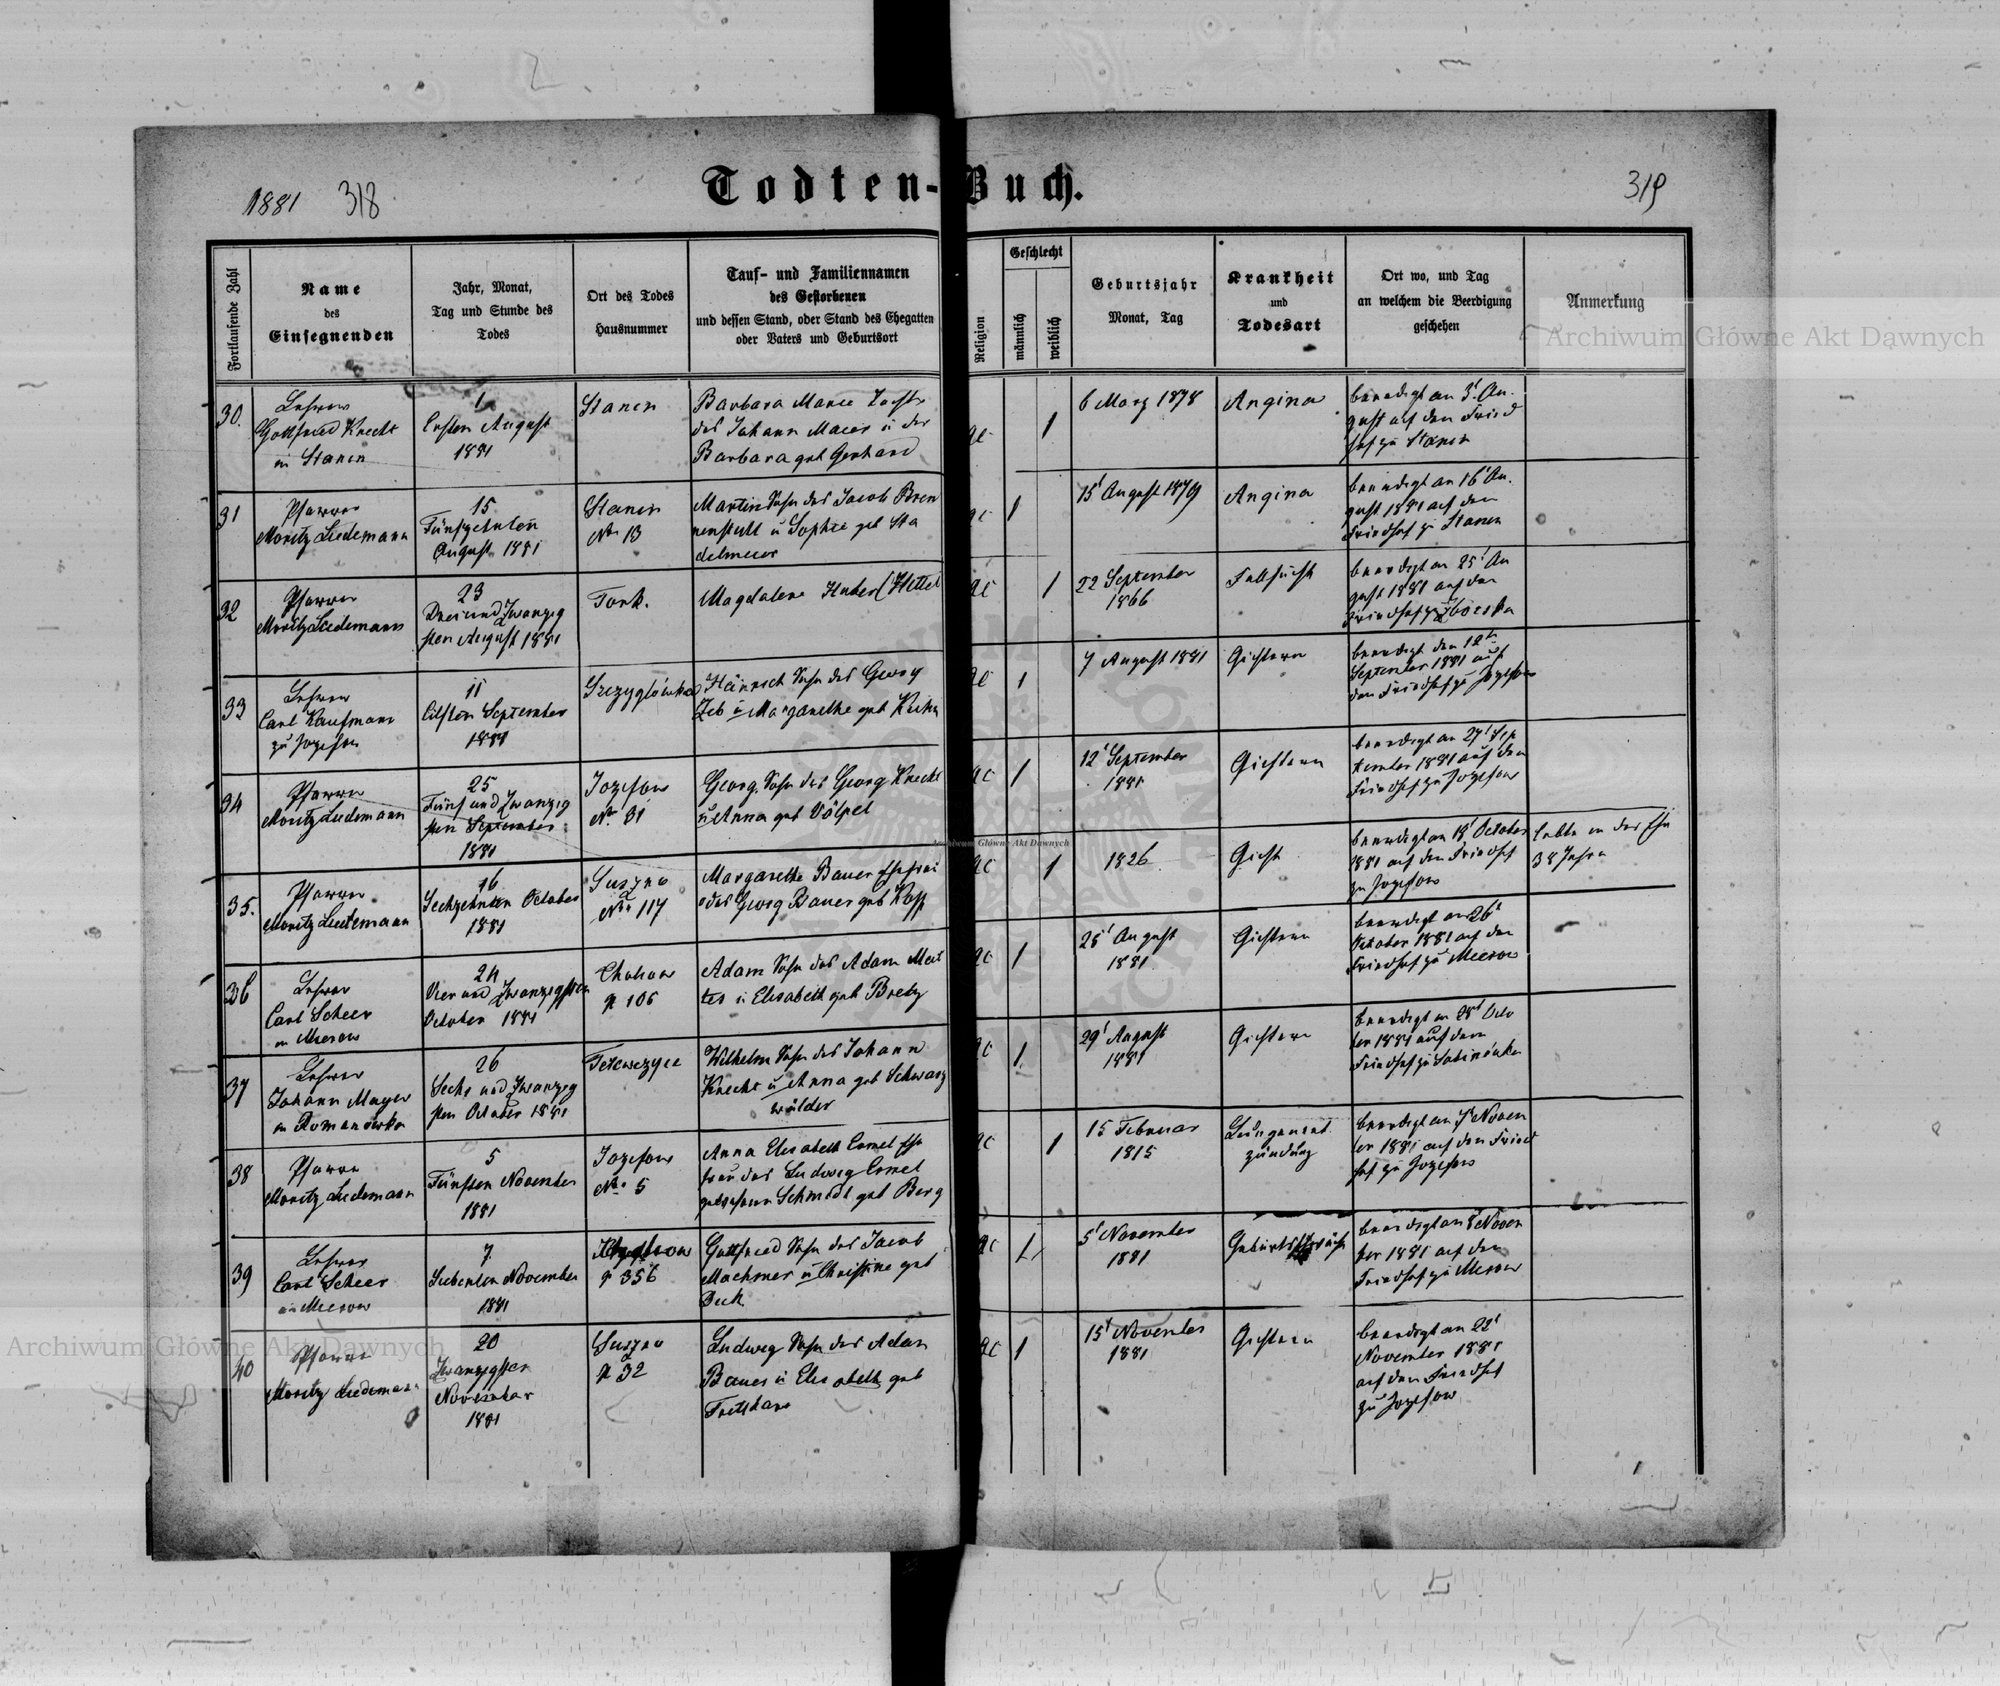 1881 318
Todten-Buch.
319
Fortlaufende Zahl
Name
des
Einsegnenden
Jahr, Monat,
Tag und Stunde des
Todes
Ort des Todes
Hausnummer
Tauf- und Familiennamen
des Gestorbenen
und dessen Stand, oder Stand des Ehegatten
oder Vaters und Geburtsort
Religion
Geschlecht
männlich
weiblich
Geburtsjahr
Monat, Tag
Krankheit
und
Todesart
Ort wo, und Tag
an welchem die Beerdigung
geschehen
Anmerkung
Archiwum Główne Akt Dawnych
30.
Lehrer
Gottfried Knecht
in Stanin
1
Ersten August
1881
Stanin
Barbara Marie Tochter
des Johann Maier u der
Barbara geb Gerhard
1
6 März 1878
Angina
beerdigt am 3t Au-
gust auf dem Fried
hof zu Stanin
31
Pfarrer
Moritz Liedemann
15
Fünfzehnten
August 1881
Stanin
No 13
Martin Sohn des Jacob Bren
nenstuhl u Sophie geb Sta
delmeier
1
15t August 1879
Angina
beerdigt am 16t Au-
gust 1881 auf dem
Friedhof zu Stanin
32
Pfarrer
Moritz Liedemann
23
Drei und Zwanzig
sten August 1881
Magdalena Huber
1
22 September
1866
Fallsucht
beerdigt am 25t Au
gust 1881 auf dem
Friedhof zu
33
Lehrer
Carl Kaufmann
zu Jozefow
11
Eilften September
1881
Heinrich Sohn des Georg
u Margarethe geb
1
7 August 1881
Gichtern
beerdigt den 12tn
September 1881 auf
dem Friedhof zu Jozefow
34
Pfarrer
Moritz Liedemann
25
Fünf und Zwanzig
sten September
1881
Jozefow
No 31
Georg Sohn des Georg Knecht
u Anna geb Völpel
1
12t September
1881
Gichtern
beerdigt am 27t Sep
tember 1881 auf dem
Friedhof zu Jozefow
35.
Pfarrer
Moritz Liedemann
16
Sechzehnten October
1881
Suszno
No 117
Margarethe Bauer Ehefrau
des Georg Bauer geb
1
1826
Gicht
beerdigt am 18t October
1881 auf dem Friedhof
zu Jozefow
Lebte in der Ehe
38 Jahre
36
Lehrer
Carl Scheer
in Mierow
24
Vier und Zwanzigsten
October 1881
№ 106
Adam Sohn des Adam
u Elisabeth geb
1
25t August
1881
Gichtern
beerdigt am 26t
October 1881 auf dem
Friedhof zu Mierow
37
Lehrer
Johann Mayer
in Romanówka
26
Sechs und Zwanzig
sten October 1881
Wilhelm Sohn des Johann
Knecht u Anna geb Schwarz
wälder
1
29t August
1881
Gichtern
beerdigt am 28t Octo
ber 1881 auf dem
Friedhof zu Sabinówka
38
Pfarrer
Moritz Liedemann
5
Fünften November
1881
Jozefow
No 5
Anna Elisabeth Ehe
frau des Ludwig
Schmidt geb Berg
1
15 Februar
1815
Lungenent
zündung
beerdigt am 7t Novem
ber 1881 auf dem Fried
hof zu Jozefow
39
Lehrer
Carl Scheer
in Mierow
7
Siebenten November
1881
№ 356
Gottfried Sohn des Jacob
Machmer u Christine geb
1
5t November
1881
beerdigt am 8t Novem
ber 1881 auf dem
Friedhof zu Mierow
40
Pfarrer
Moritz Liedemann
20
Zwanzigsten
November
1881
Suszno
№ 32
Ludwig Sohn des Adam
Bauer u Elisabeth geb
1
15t November
1881
Gichtern
beerdigt am 22t
November 1881
auf dem Friedhof
zu Jozefow
Archiwum Główne Akt Dawnych
Archiwum Główne Akt Dawnych